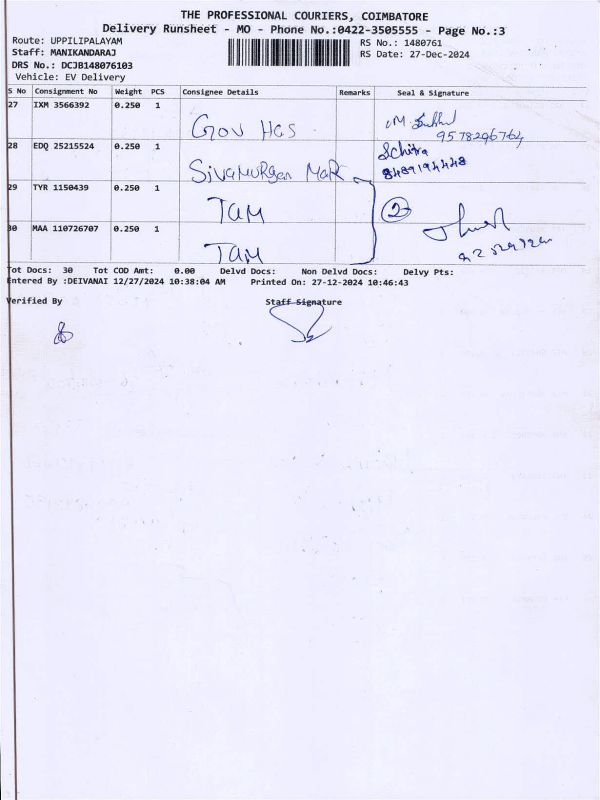 THE PROFESSIONAL COURIERS, COIMBATORE
Delivery Runsheet - MO - Phone No.:0422-3505555 - Page No.:3
Route: UPPILIPALAYAM
RS No.: 1480761
Staff: MANIKANDARAJ
RS Date: 27-Dec-2024
DRS No.: DCJB148076103
Vehicle: EV Delivery
S No Consignment No Weight PCS Consignee Details Remarks Seal & Signature
27 IXM 3566392 0.250 1
Gov Hos
9578296764
28 EDQ 25215524 0.250 1
Schitra
8489194448
Sivamurgan Mark
29 TYR 1150439 0.250 1
TAM
2
30 MAA 110726707 0.250 1
TAM
Tot Docs: 30 Tot COD Amt: 0.00 Delvd Docs: Non Delvd Docs: Delvy Pts:
Entered By :DEIVANAI 12/27/2024 10:38:04 AM Printed On: 27-12-2024 10:46:43
Verified By Staff Signature